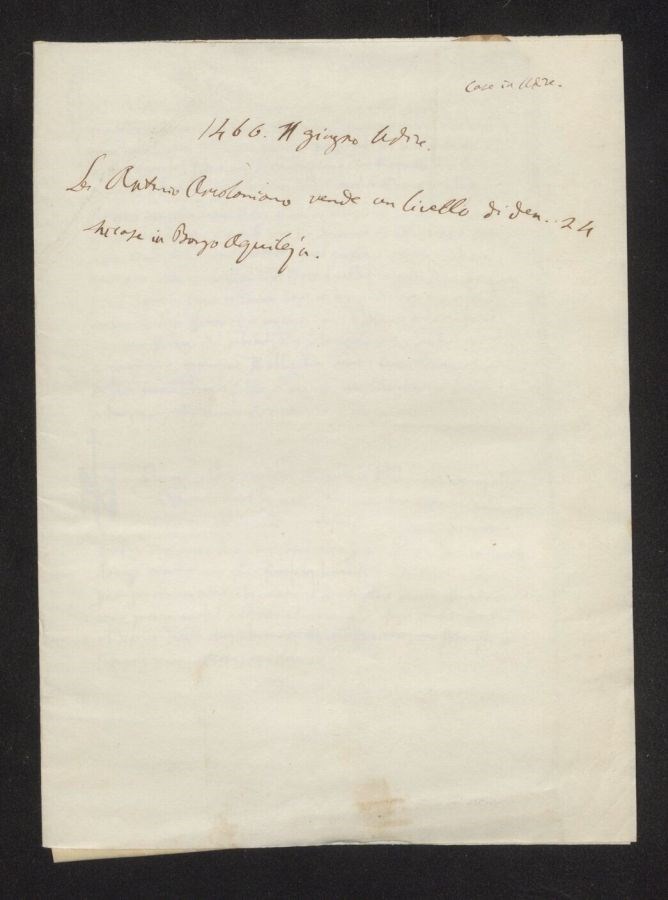 Case in Udine.
1466. 11 giugno Udine.
Ser Antonio vende un livello di den. 24
su case in Borgo Aquileja.